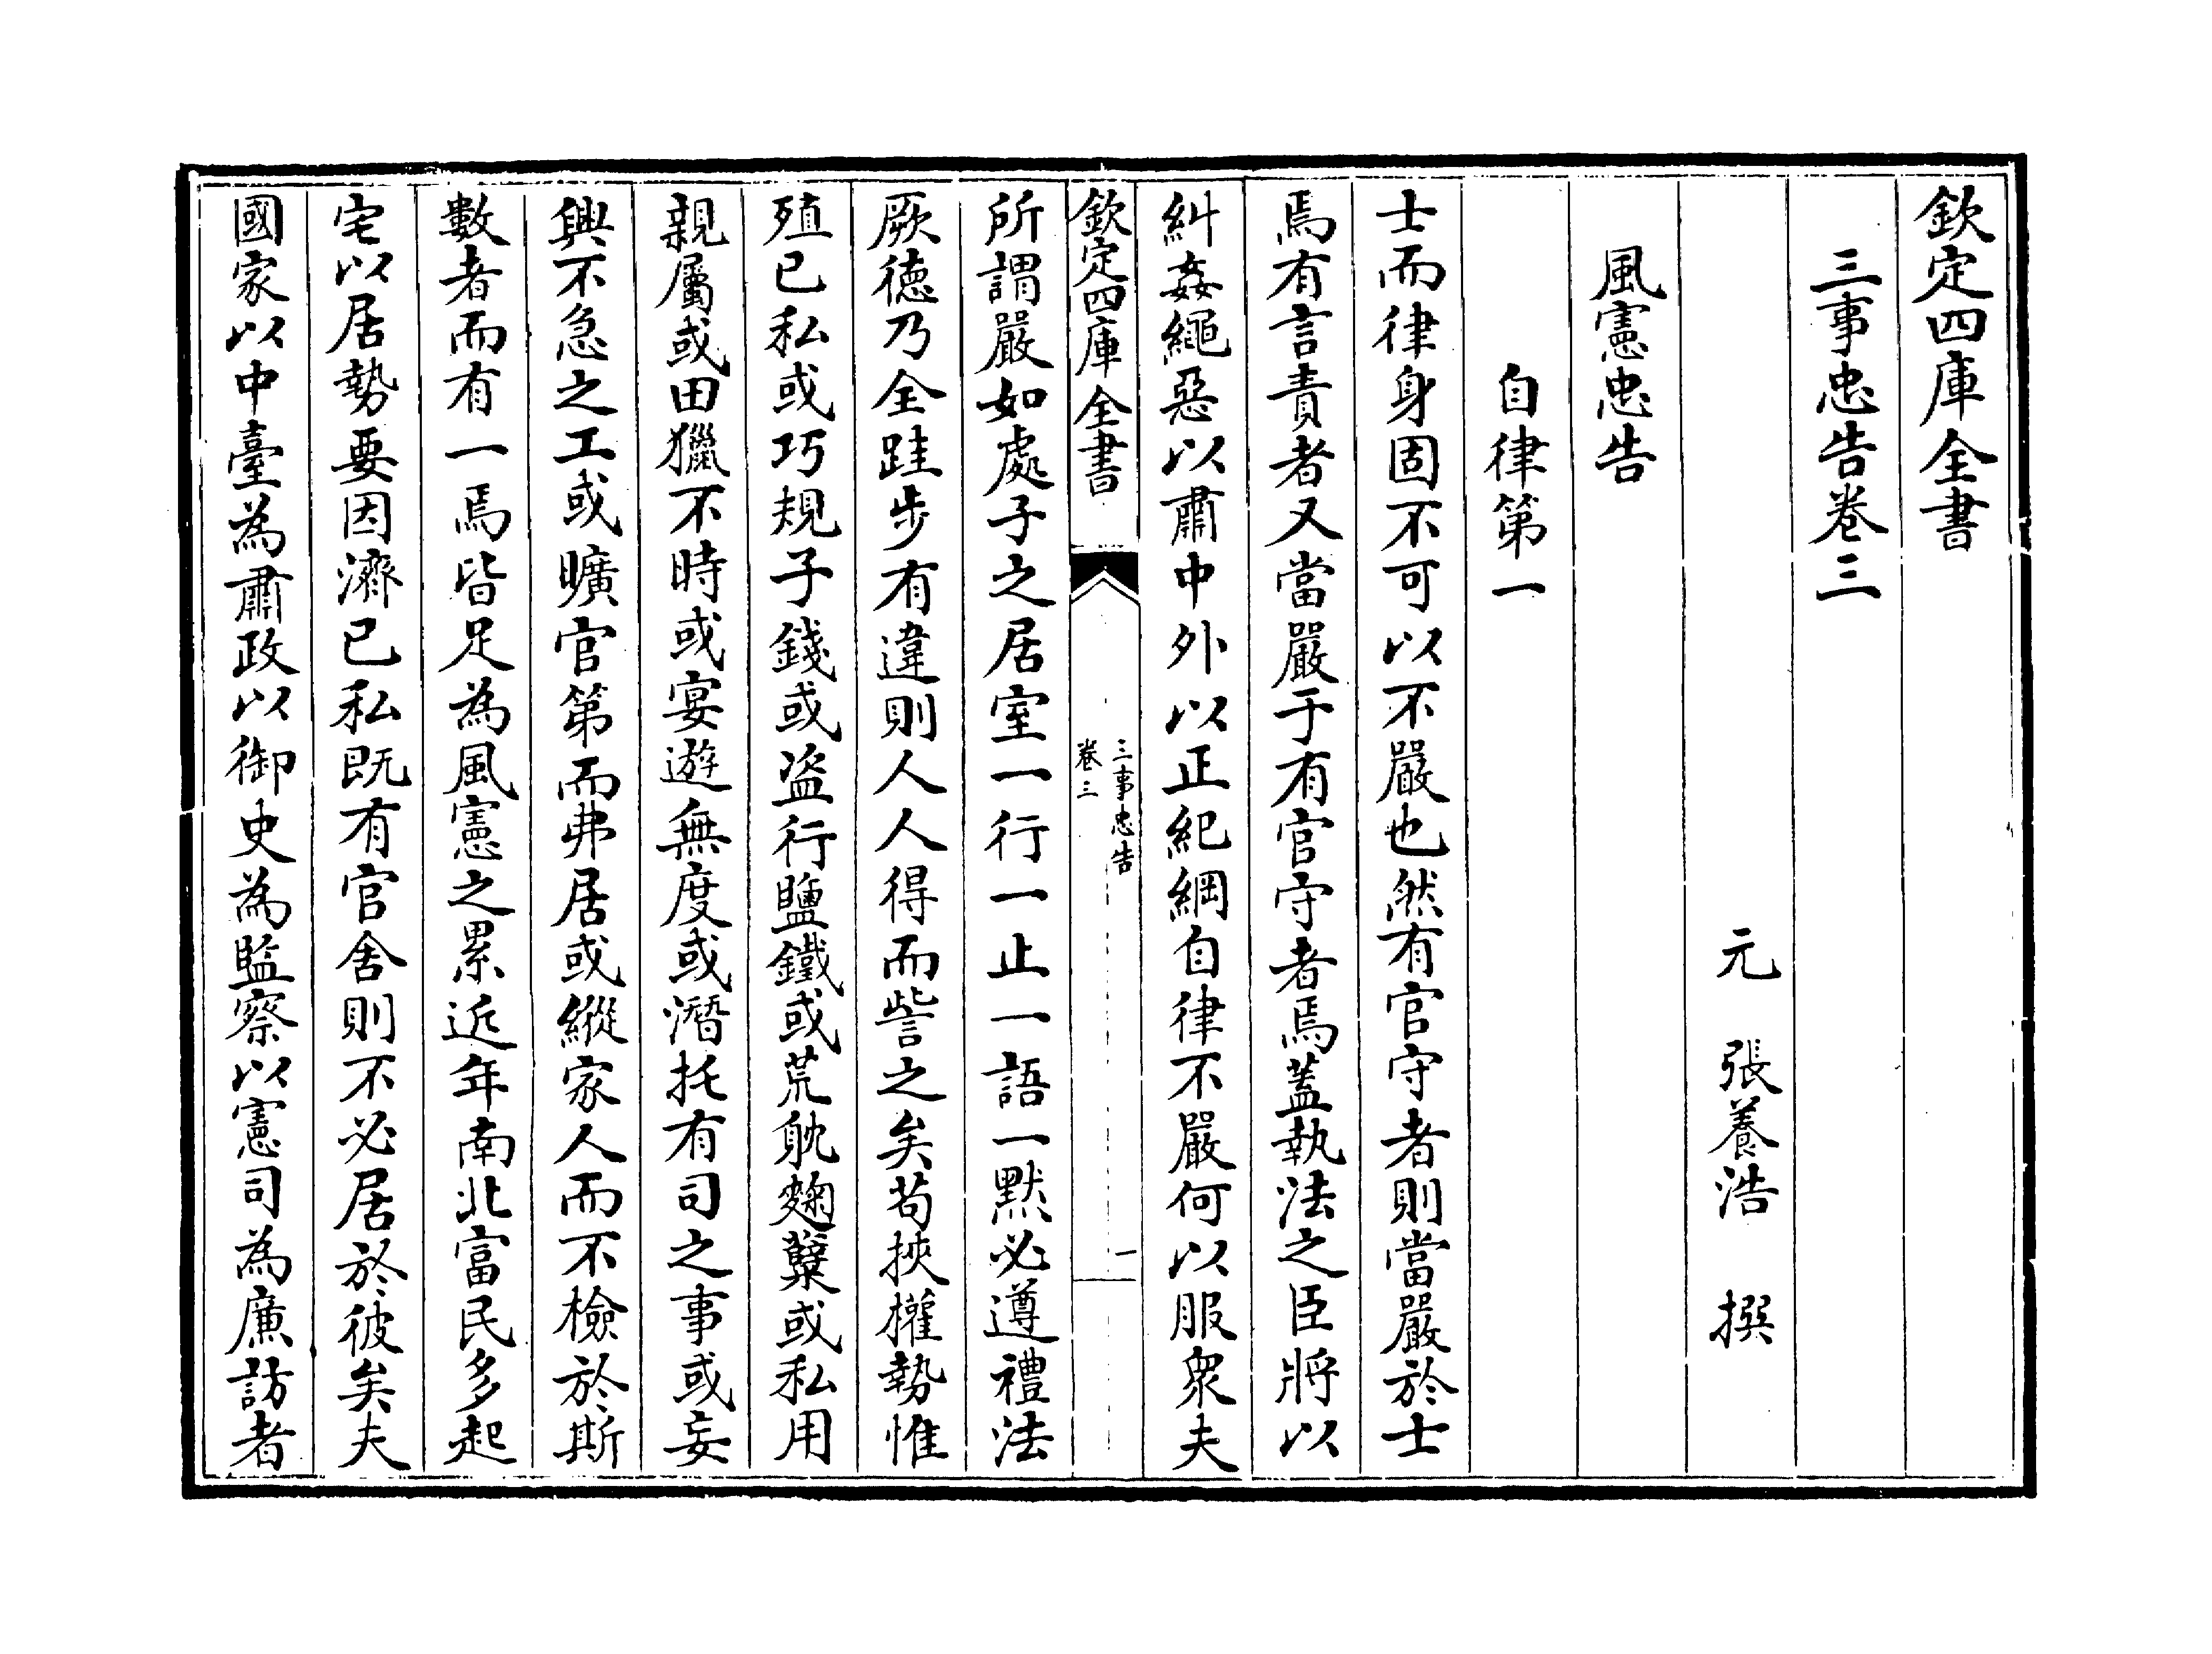 欽定四庫全書
三事忠告卷三
元　張養浩　撰
風憲忠告
自律第一
士而律身固不可以不嚴也然有官守者則當嚴於士
焉有言責者又當嚴于有官守者焉蓋執法之臣將以
糾姦繩惡以肅中外以正紀綱自律不嚴何以服衆夫
欽定四庫全書
三事忠告
卷三
一
所謂嚴如處子之居室一行一止一語一默必遵禮法
厥徳乃全跬步有違則人人得而訾之矣茍挾權勢惟
殖已私或巧規子錢或盗行鹽鐵或荒躭麴糵或私用
親屬或田獵不時或宴遊無度或潛托有司之事或妄
興不急之工或曠官第而弗居或縱家人而不檢於斯
數者而有一焉皆足為風憲之累近年南北富民多起
宅以居勢要因濟已私既有官舍則不必居於彼矣夫
國家以中臺為肅政以御史為監察以憲司為廉訪者